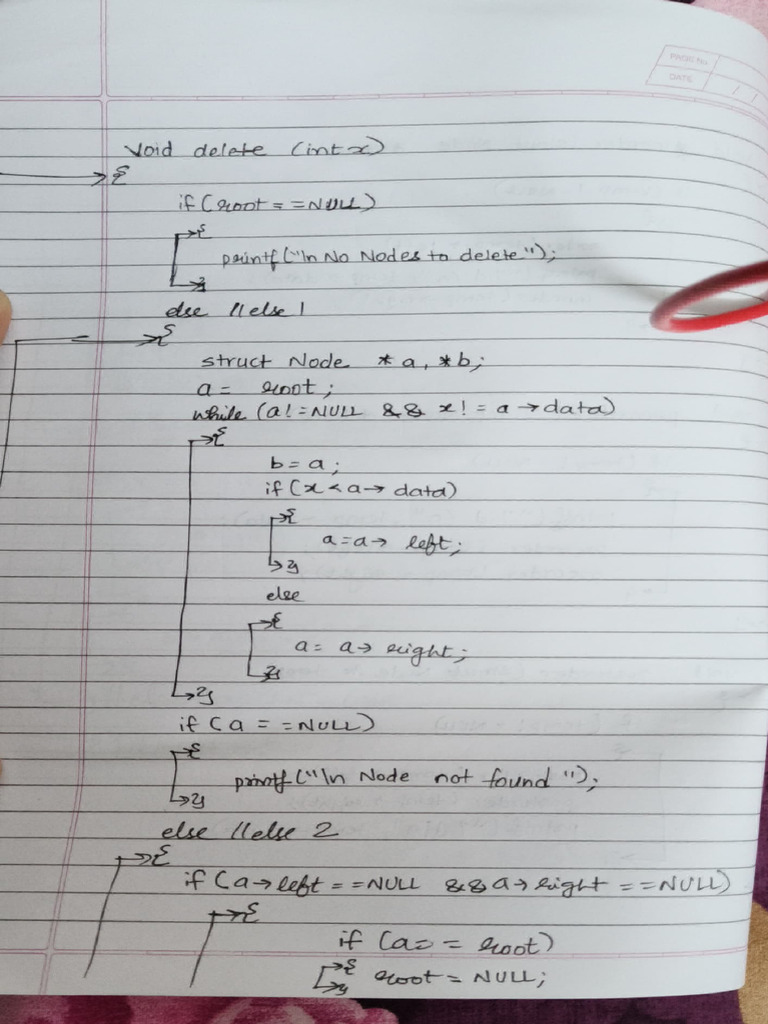 PAGE No.
DATE / /
void delete (int x)
{
if (root == NULL)
{
printf("\n No Nodes to delete");
}
else //else 1
{
struct Node *a, *b;
a = root;
while (a! = NULL && x! = a → data)
{
b = a;
if (x < a → data)
{
a = a → left;
}
else
{
a = a → right;
}
}
if (a == NULL)
{
printf("\n Node not found ");
}
else //else 2
{
if (a → left == NULL && a → right == NULL)
{
if (a == root)
{ root = NULL;
}